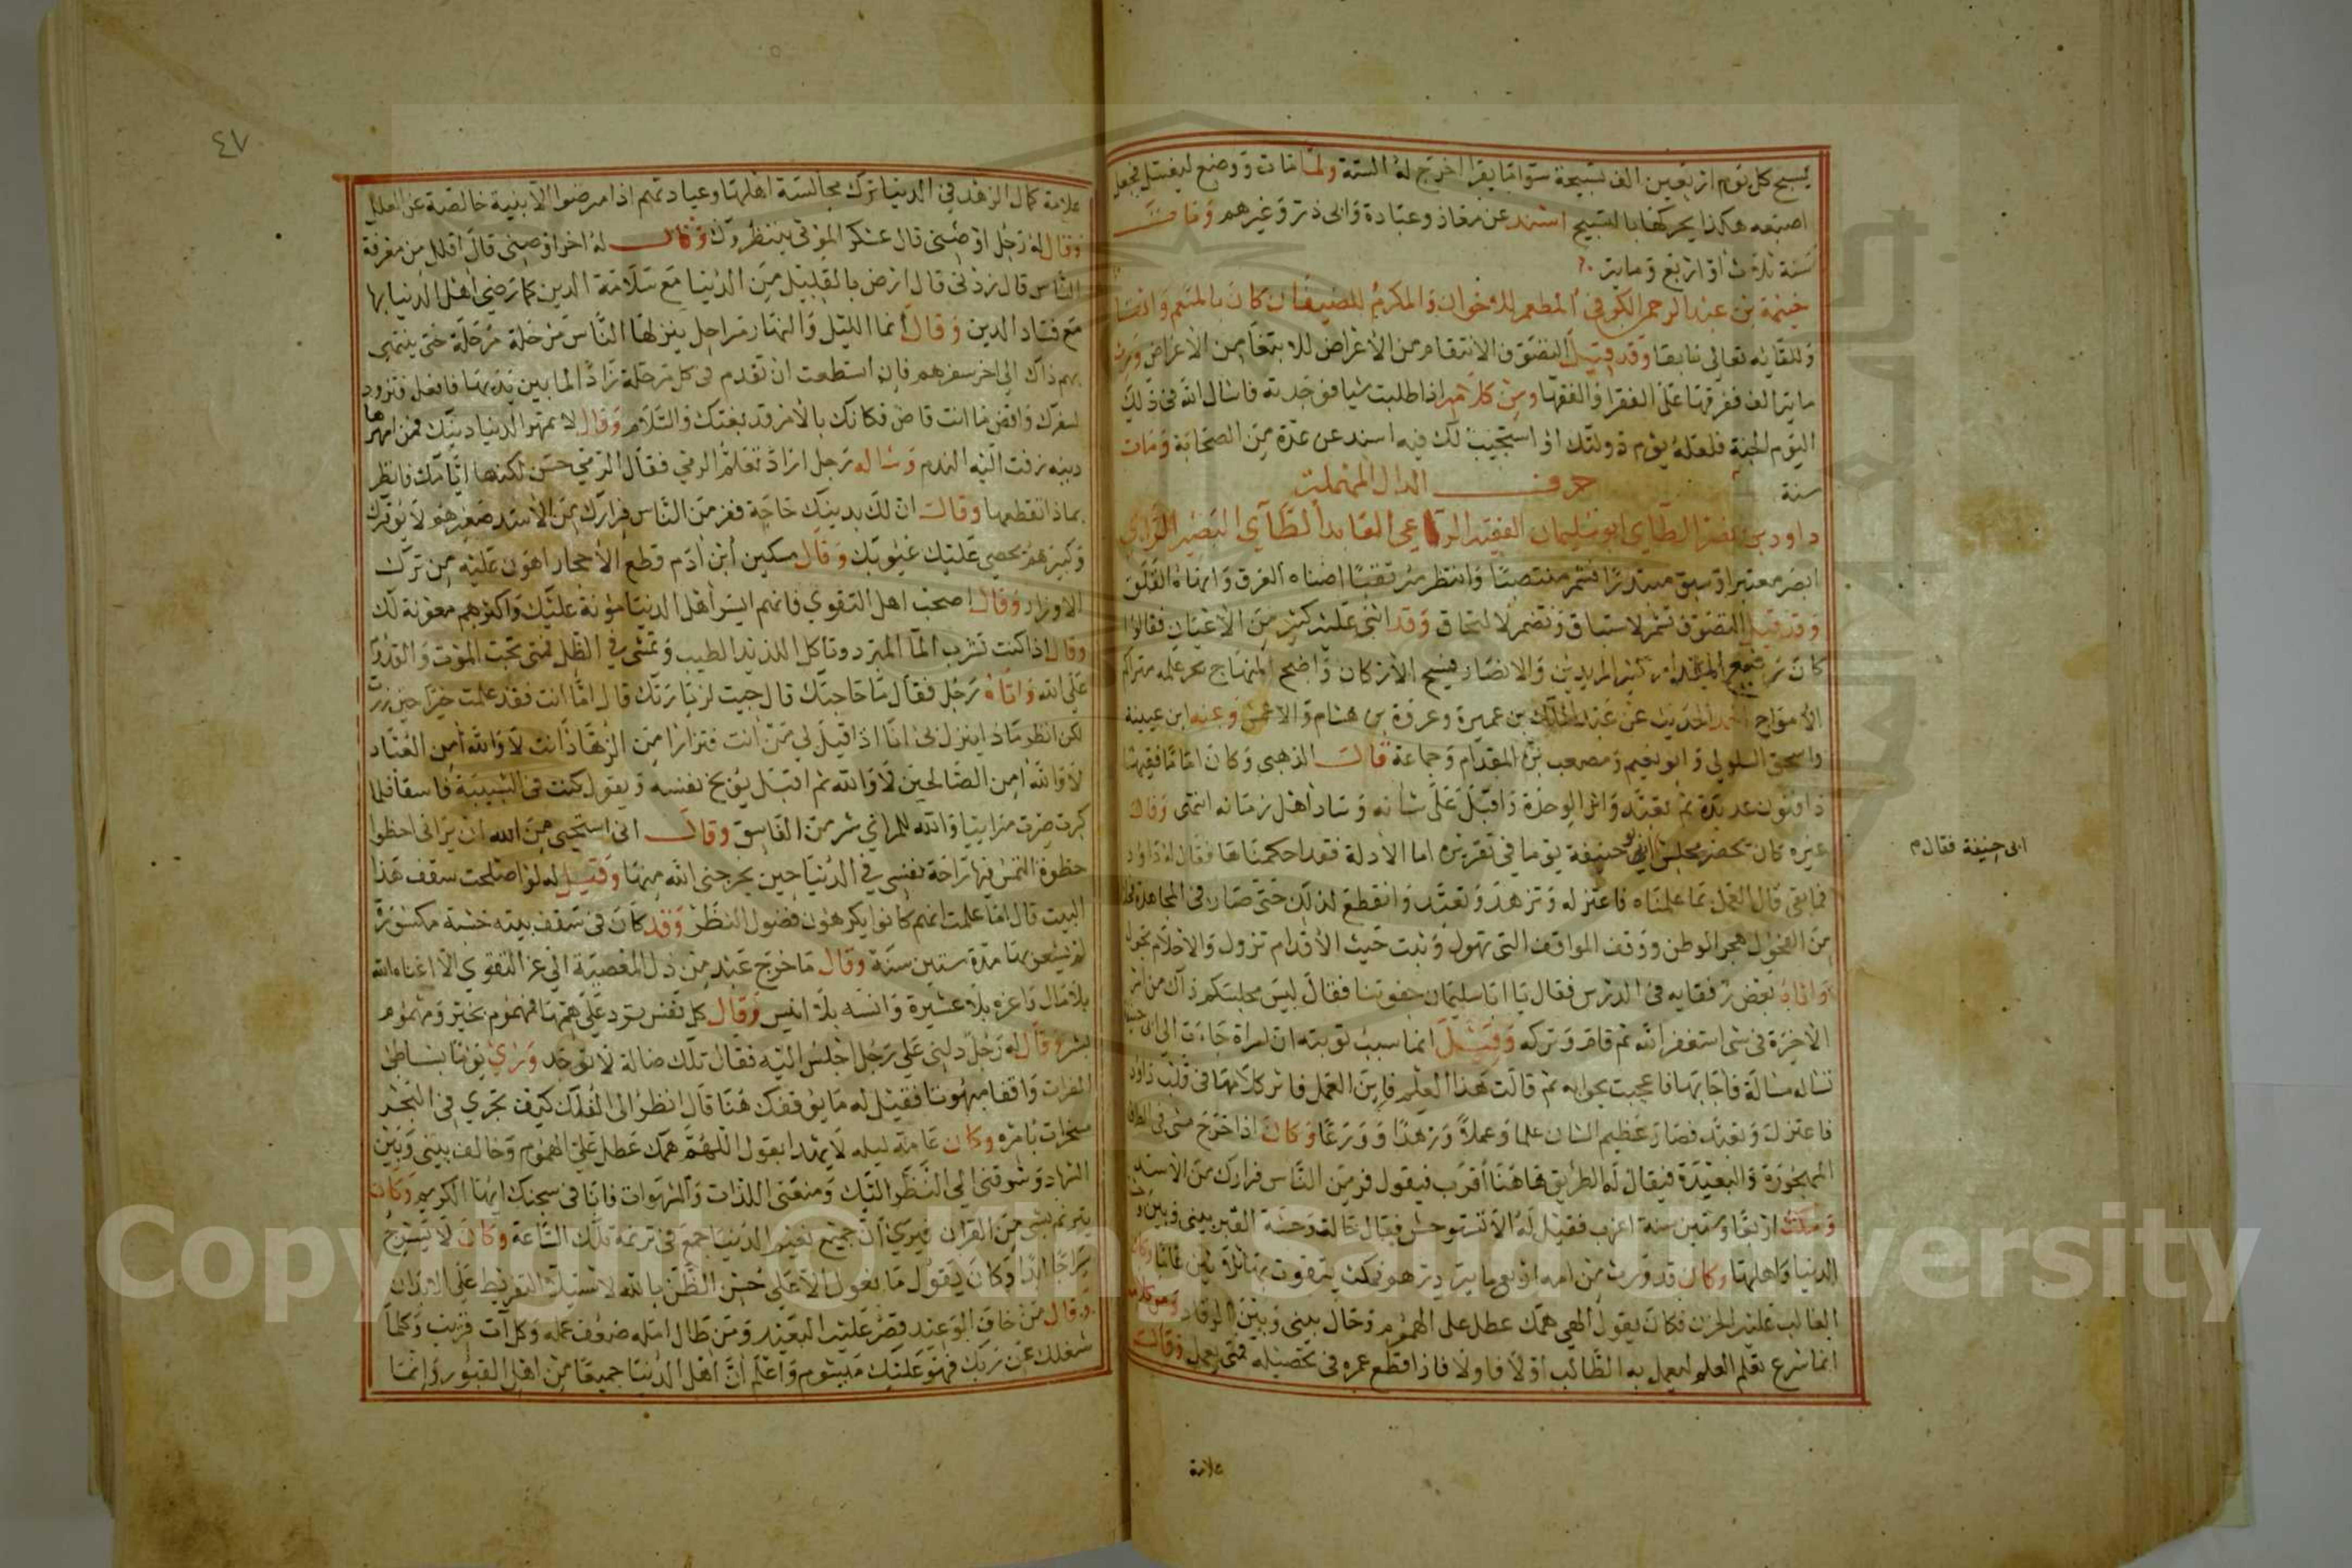 يسبح كل يوم اربعين الف تسبيحة سوا ما يقرا اخرج له الستة ولما مات ووضع ليغسل فجعل
اصبعه هكذا يحركها بالتسبيح اسند عن معاذ وعبادة وابى ذر وغيرهم ومات
سنة ثلاث او اربع وماية
خيثمة بن عبد الرحمن الكوفى المطعم للاخوان والمكرم للضيفان كان بالمنعم واثقا
وللقايه تعالى شايقا وقد قيل التصوف الانتقام من الاعراض للابتغا من الاعراض ورث
مايتى الف ففرقها على الفقرا والفقها ومن كلامه اذا طلبت شيا فوجدته فاسال الله فى ذلك
اليوم الجنة فلعله يوم دولتك او استجيب لك فيه اسند عن عدة من الصحابة ومات
سنة
حرف الدال المهملة
داود بن نصر الطآى ابو سليمان الفقيه الواعى العابد الطآى البصير الراى
ابصر معتبرا وسبق مبتدرا فشمر منتصبا وانتظر مرتقبا اضناه الفرق وانهاه القلق
وقد قيل التصوف تشمر لاستباق وتضمر لالتحاق وقد اثنى عليه كثير من الاعيان فقالوا
كان كثير المريدين والانصار فسيح الاركان واضح المنهاج بحر علمه متراكم
الامواج اخذ الحديث عن عبد الملك بن عمير وعروة بن هشام والاعمش وعنه ابن عيينة
واسحق السلولى وابو نعيم ومصعب بن المقدام وجماعة قال الذهبى وكان اماما فقيها
ذا فنون عديدة ثم تعبد واثر الوحدة واقبل على شانه وساد اهل زمانه انتهى وقال
غيره كان يحضر مجلس ابى حنيفة يوما فى تقريره اما الادلة فقد احكمناها فقال له داود
ابى حنيفة فقال م
فما بقى قال العمل بما علمناه فاعتزله وتزهد وتعبد وانقطع لذلك حتى صار فى المجاهدة
من الفحول هجر الوطن ووقف المواقف التى تهول وثبت حيث الاقدام تزول والاحلام تحول
واتاه بعض رفقايه فى الدرس فقال يا ابا سليمان جفوتنا فقال ليس مجلسكم ذاك من اثر
الاخرة فى شى استغفر الله ثم قام وتركه وقيل انما سبب توبته ان امراة جاءت الى ابى
تساله مسالة فاجابها فاعجبت بجوابه ثم قالت هذا العلم فاين العمل فاثر كلامها فى قلب داود
فاعتزل وتعبد فصار عظيم الشان علما وعملا وزهدا وورعا وكان اذا خرج مشى فى الطرق
المهجورة والبعيدة فيقال له الطريق هاهنا اقرب فيقول فر من الناس فرارك من الاسد
ومكث اربعا وستين سنة اعزب فقيل له الا تستوحش فقال حالت وحشة القبر بينى وبين
الدنيا واهلها وكان قد ورث من امه اربع ماية درهم فمكث يتقوت بها ثلاثين عاما وكان
الغالب عليه الحزن فكان يقول الهى همك عطل على الهموم وحال بينى وبين الرقاد ومن كلامه
انما شرع تعلم العلم ليعمل به الطالب اولا فاولا فاذا قطع عمره فى تحصيله فمتى يعمل وقال
علامة
٤٧
علامة كمال الزهد في الدنيا ترك مجالسة اهلها وعيادتهم اذا مرضوا الا بنية خالصة عن العلل
وقال له رجل اوصنى قال عسكر الموتى ينتظرونك وقال له اخر اوصنى قال اقلل من معرفة
الناس قال زدنى قال ارض بالقليل من الدنيا مع سلامة الدين كما رضى اهل الدنيا بها
مع فساد الدين وقال انما الليل والنهار مراحل ينزلها الناس مرحلة مرحلة حتى ينتهى
بهم ذاك الى اخر سفرهم فان استطعت ان تقدم فى كل مرحلة زادا لما بين يديها فافعل وتزود
لسفرك واقض ما انت قاض فكانك بالامر قد بغتك والسلام وقال لا تمهر الدنيا دينك فمن امهرها
دينه زفت اليه الندم وساله رجل اراد تعلم الرمى فقال الرمى حسن لكنها ايامك فانظر
بماذا تقطعها وقال ان لك بدينك حاجة ففر من الناس فرارك من الاسد صغيرهم لا يوقرك
وكبيرهم يحصي عليك عيوبك وقال مسكين ابن ادم قطع الاحجار اهون عليه من ترك
الاوزار وقال اصحب اهل التقوى فانهم ايسر اهل الدنيا مؤنة عليك واكثرهم معونة لك
وقال اذا كنت تشرب الما المبرد وتاكل اللذيذ الطيب وتمشى في الظل فمتى تحب الموت والقدوم
على الله واتاه رجل فقال ما حاجتك قال جيت لزيارتك قال اما انت فقد عملت خيرا حين زرت
لكن انظر ماذا ينزل بى انا اذا قيل لى من انت فتزارا من الزهاد انت لا والله امن العباد
لا والله امن الصالحين لا والله ثم اقبل يوبخ نفسه ويقول كنت فى الشبيبة فاسقا فلما
كبرت صرت مرابيا والله للمرائي شر من الفاسق وقال انى استحيي من الله ان يرانى احظوا
حظوة التمس فيها راحة نفسى في الدنيا حين يخرجنى الله منها وقيل له لو اصلحت سقف هذا
البيت قال اما علمت انهم كانوا يكرهون فضول النظر وقد كان فى سقف بيته خشبة مكسورة
لم يشعر بها مدة ستين سنة وقال ما خرج عبد من ذل المعصية الى عز التقوى الا اغناه الله
بلا مال واعزه بلا عشيرة وانسه بلا انيس وقال كل نفس ترد على همتها فمهموم بخير ومهموم
بشر وقال له رجل دلنى على رجل اجلس اليه فقال تلك ضالة لا توجد وراي يوما بشاطئ
الفرات واقفا مبهوتا فقيل له ما يوقفك هنا قال انظر الى الفلك كيف تجري فى البحر
مسخرات بامره وكان عامة ليله لا يهدا يقول اللهم همك عطل على الهموم وحالف بينى وبين
السهاد وشوقنى الى النظر اليك ومنعنى اللذات والشهوات فانا فى سجنك ايها الكريم وكان
يترنم بشى من القران فيرى ان جميع نعيم الدنيا جمع فى ترنمه تلك الساعة وكان لا يسرج
سراجا ابدا وكان يقول ما نعول الا على حسن الظن بالله لاستيلا التفريط على الابدان
وقال من خاف الوعيد قصر عليه البعيد ومن طال امله ضعف عمله وكل آت قريب وكلما
شغلك عن ربك فهو عليك مشوم واعلم ان اهل الدنيا جميعا من اهل القبور وانما